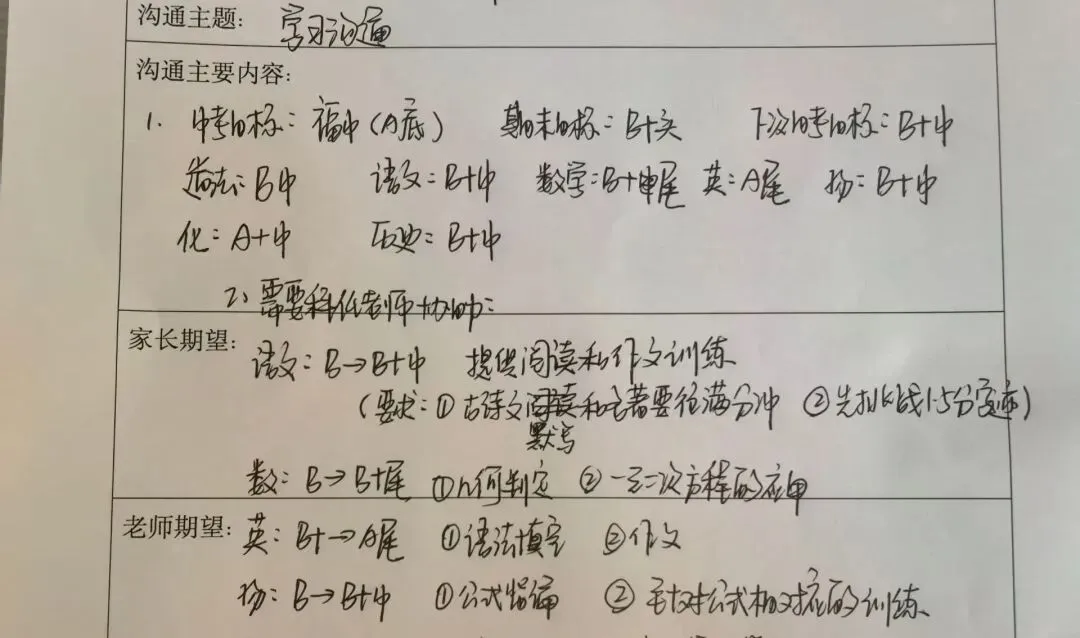 沟通主题: 学习沟通
沟通主要内容:
1. 中考目标: 福中(A底) 期末目标: B+尖 下次月考目标: B+中
道法: B中 语文: B+中 数学: B+尾 英: A尾 物: B+中
化: A+中 历史: B+中
2、需要科任老师协助:
家长期望: 语文: B→B+中 提供阅读和作文训练
(要求: ① 古诗文和名著要往满分冲 ② 先挑战15分)
默写
数: B→B+尾 ①几何判定 ② 一元二次方程的应用
老师期望: 英: B+→A尾 ①语法填空 ②作文
物: B→B+中 ①公式 ② 针对公式相对应的训练、